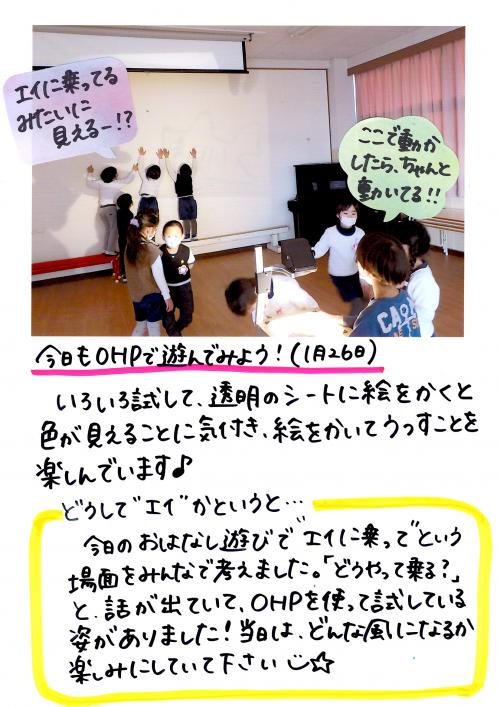 エイに乗ってる
みたいに
見えるー!?
ここで動か
したら、ちゃんと
動いてる!!
今日もOHPで遊んでみよう!(1月26日)
いろいろ試して、透明のシートに絵をかくと
色が見えることに気付き、絵をかいてうつすことを
楽しんでいます♪
どうして"エイ"かというと…
今日のおはなし遊びで"エイに乗って"という
場面をみんなで考えました。「どうやって乗る?」
と、話が出ていて、OHPを使って試している
姿がありました!当日は、どんな風になるか
楽しみにしていて下さい☺☆